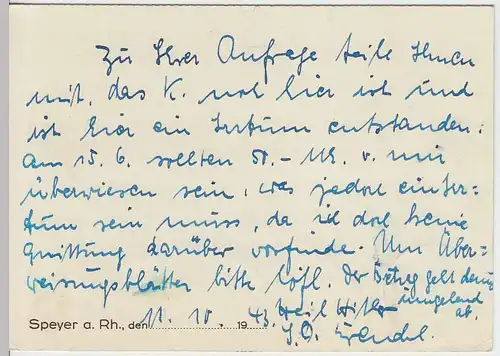 Zu Ihrer Anfrage teile Ihnen
mit, das K. noch hier ist und
ist hier ein Irrtum entstanden.
Am 15. 6. sollten 50.- Mk. v. mir
überwiesen sein, was jedoch ein Irr-
tum sein muss, da ich doch keine
Quittung darüber vorfinde. Um Über-
weisungsblätter bitte höfl. Der Betrag geht dann
umgehend
Speyer a. Rh., den 11. 10. 1943 Heil Hitler ab.